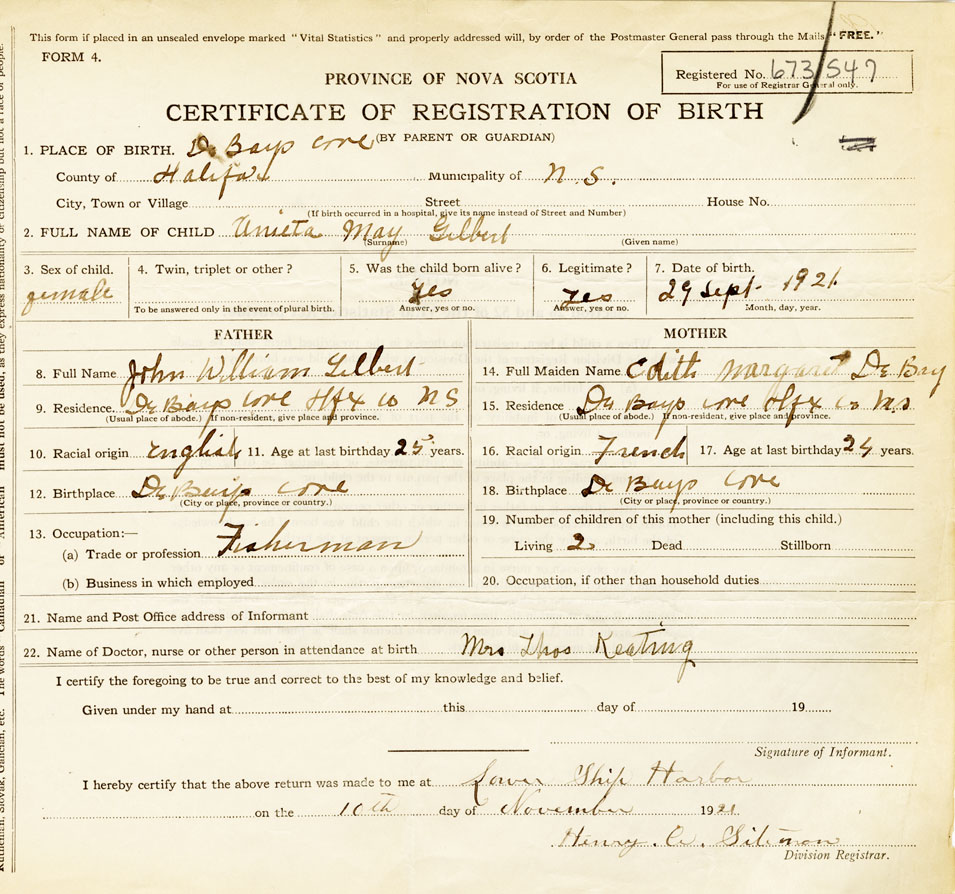 This form if placed in an unsealed envelope marked "Vital Statistics" and properly addressed will, by order of the Postmaster General pass through the Mails "FREE."
FORM 4.
Registered No. 673547
For use of Registrar General only.
PROVINCE OF NOVA SCOTIA
CERTIFICATE OF REGISTRATION OF BIRTH
(BY PARENT OR GUARDIAN)
1. PLACE OF BIRTH. De Bays Cove
County of Halifax Municipality of N.S.
City, Town or Village Street House No.
(If birth occurred in a hospital, give its name instead of Street and Number)
2. FULL NAME OF CHILD Anieta May Gilbert
(Surname) (Given name)
3. Sex of child. 4. Twin, triplet or other? 5. Was the child born alive? 6. Legitimate? 7. Date of birth.
female yes yes 29 Sept. 1921.
To be answered only in the event of plural birth. Answer, yes or no. Answer, yes or no. Month, day, year.
FATHER
8. Full Name John William Gilbert
9. Residence De Bays Cove Hfx Co N S
(Usual place of abode.) If non-resident, give place and province.
10. Racial origin English 11. Age at last birthday 25 years.
12. Birthplace De Bays Cove
(City or place, province or country.)
13. Occupation:—
(a) Trade or profession Fisherman
(b) Business in which employed
MOTHER
14. Full Maiden Name Edith Margaret De Bay
15. Residence De Bays Cove Hfx Co N.S
(Usual place of abode.) If non-resident, give place and province.
16. Racial origin French 17. Age at last birthday 24 years.
18. Birthplace De Bays Cove
(City or place, province or country.)
19. Number of children of this mother (including this child.)
Living 2 Dead Stillborn
20. Occupation, if other than household duties
21. Name and Post Office address of Informant
22. Name of Doctor, nurse or other person in attendance at birth Mrs Thos Keating
I certify the foregoing to be true and correct to the best of my knowledge and belief.
Given under my hand at this day of 19
Signature of Informant.
I hereby certify that the above return was made to me at Lower Ship Harbor
on the 10th day of November 1921
Henry
Division Registrar.